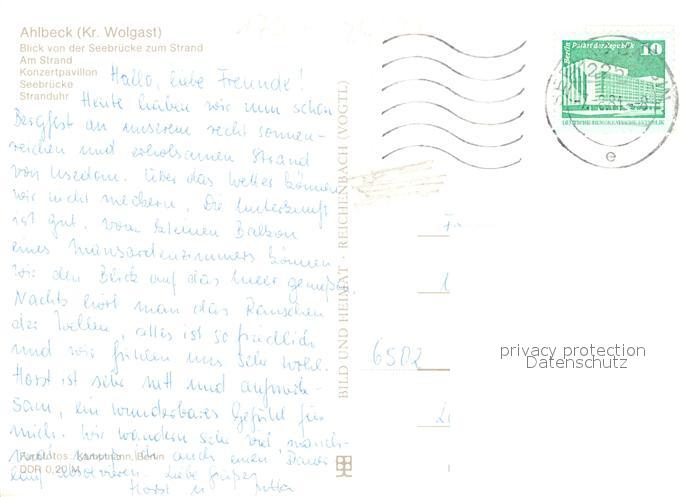 Ahlbeck (Kr. Wolgast)
Blick von der Seebrücke zum Strand
Am Strand
Konzertpavillon
Seebrücke
Stranduhr
Hallo, liebe Freunde!
Heute haben wir nun schon
Bergfest an unserem recht sonnen-
reichen und erholsamen Strand
von Usedom. Über das Wetter können
wir nicht meckern. Die Unterkunft
ist gut. Vom kleinen Balkon
eines Mansardenzimmers können
wir den Blick auf das Meer genießen.
Nachts hört man das Rauschen
der Wellen, alles ist so friedlich
und wir fühlen uns sehr wohl.
Horst ist sehr nett und aufmerk-
sam, ein wunderbares Gefühl für
mich. Wir wandern sehr viel
auch einen
absolvieren. Liebe Grüße
Horst u. Jutta
Farbfotos: Kamptmann, Berlin
DDR 0,20 M
BILD UND HEIMAT · REICHENBACH (VOGTL)
Berlin Palast der Republik 10
DEUTSCHE DEMOKRATISCHE REPUBLIK
e
6502
privacy protection
Datenschutz